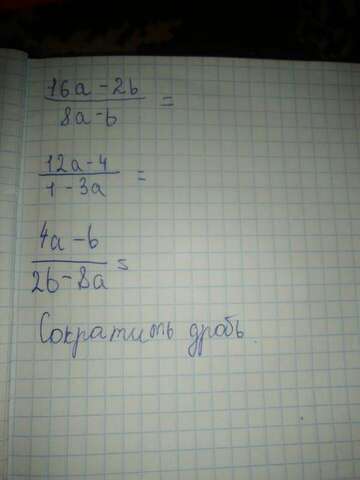 16a - 2b
8a - b
=
12a - 4
1 - 3a
=
4a - b
2b - 8a
=
Сократить дробь.